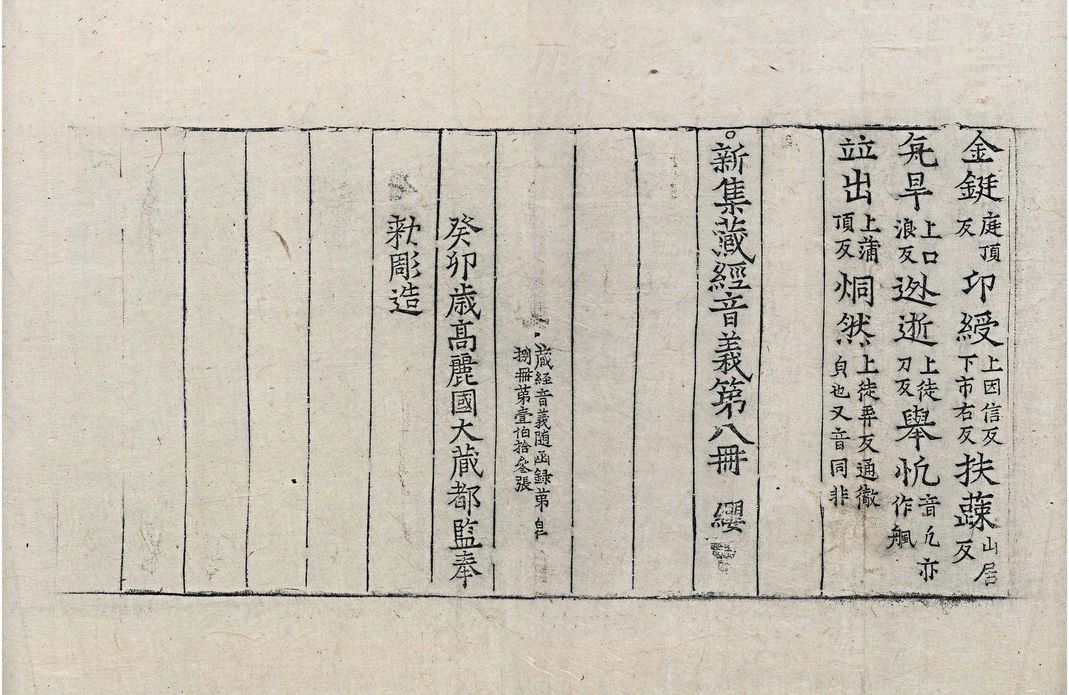 金鋌庭頂反印綬上因信反下市右反扶蔬山居反
旱上口浪反迯逝上徒刀反舉忼音亢亦作
竝出上蒲頂反烔然上徒弄反通徹皃也又音同非
新集藏經音義第八冊 纓
藏經音義随函録第
捌冊第壹伯拾叄張
癸卯歳髙麗國大藏都監奉
勑彫造